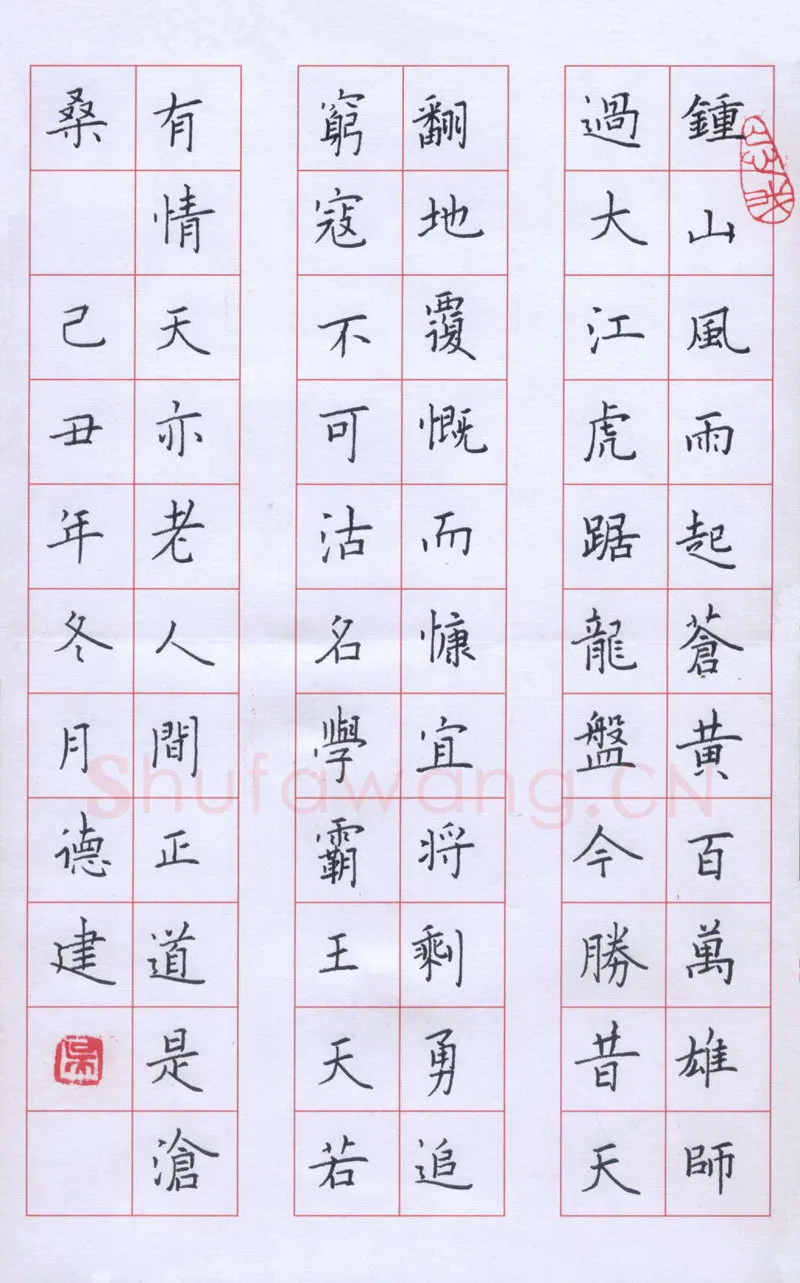 鍾山風雨起蒼黃百萬雄師
過大江虎踞龍盤今勝昔天
翻地覆慨而慷宜将剩勇追
窮寇不可沽名學霸王天若
有情天亦老人間正道是滄
桑 己丑年冬月德建
Shufawang.CN